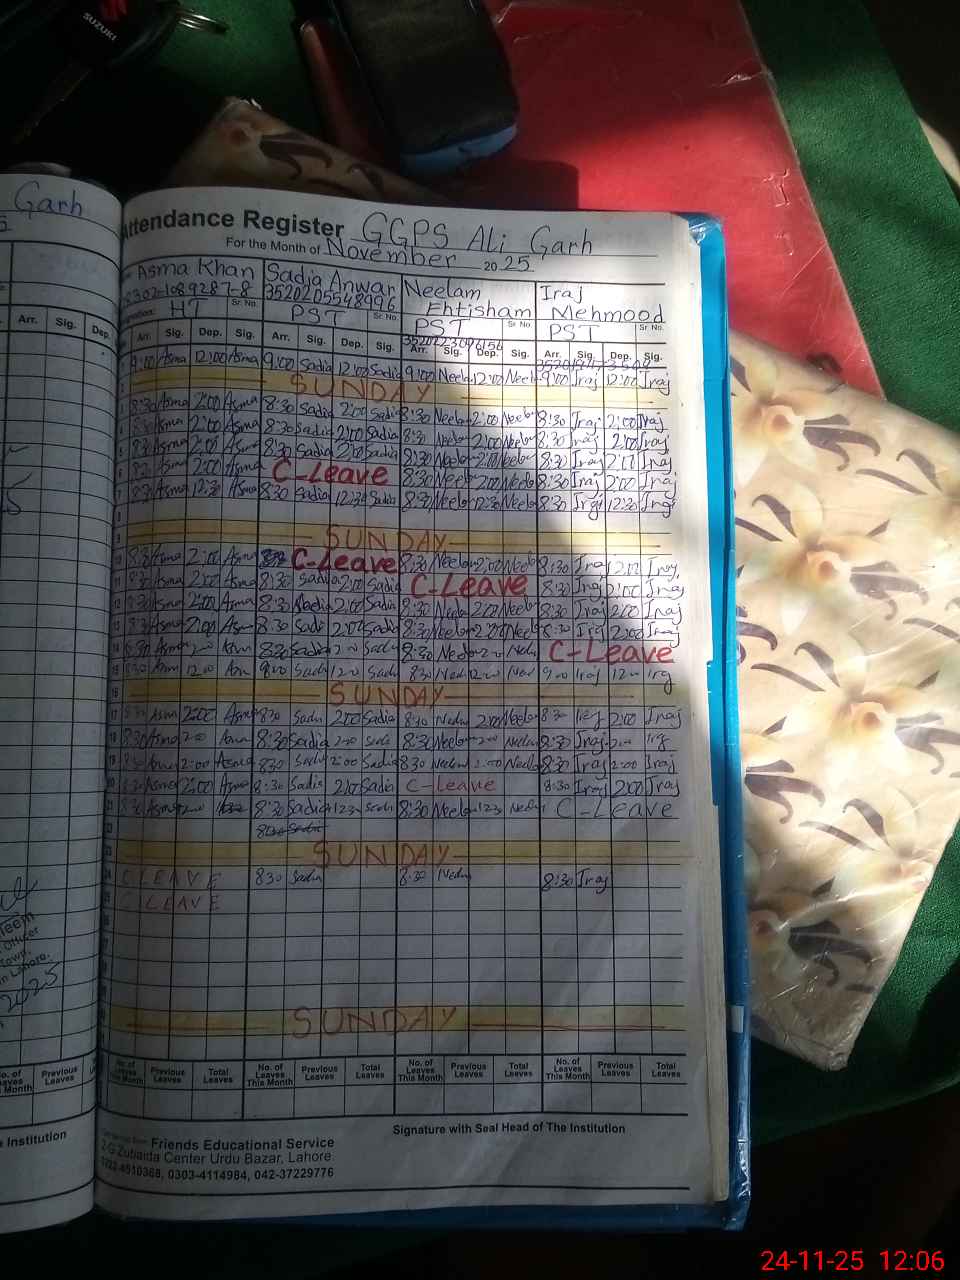 SUZUKI
Garh
Attendance Register GGPS Ali Garh
For the Month of November 2025
Asma Khan Sadia Anwar Neelam Ehtisham Iraj Mehmood
HT Sr. No. PST Sr. No. PST Sr. No. PST Sr. No.
Arr. Sig. Dep. Arr. Sig. Dep. Sig. Arr. Sig. Dep. Sig. Arr. Sig. Dep. Sig. Arr. Sig. Dep. Sig.
9:00 Asma 12:00 Asma 9:00 Sadia 12:00 Sadia 9:00 Neelam 12:00 Neelam 9:00 Iraj 12:00 Iraj
SUNDAY
8:30 Asma 2:00 Asma 8:30 Sadia 2:00 Sadia 8:30 Neelam 2:00 Neelam 8:30 Iraj 2:00 Iraj
8:30 Asma 2:00 Asma 8:30 Sadia 2:00 Sadia 8:30 Neelam 2:00 Neelam 8:30 Iraj 2:00 Iraj
8:30 Asma 2:00 Asma 8:30 Sadia 2:00 Sadia 8:30 Neelam 2:00 Neelam 8:30 Iraj 2:00 Iraj
8:30 Asma 2:00 Asma C-Leave 8:30 Neelam 2:00 Neelam 8:30 Iraj 2:00 Iraj
7 8:30 Asma 12:30 Asma 8:30 Sadia 12:30 Sadia 8:30 Neelam 12:30 Neelam 8:30 Iraj 12:30 Iraj
8
9 SUNDAY
10 8:30 Asma 2:00 Asma C-Leave 8:30 Neelam 2:00 Neelam 8:30 Iraj Iraj
11 8:30 Asma 2:00 Asma 8:30 Sadia 2:00 Sadia C-Leave 8:30 Iraj 2:00 Iraj
12 8:30 Asma 2:00 Asma 8:30 Sadia 2:00 Sadia 8:30 Neelam 2:00 Neelam 8:30 Iraj 2:00 Iraj
13 8:30 Asma 2:00 Asma 8:30 Sadia 2:00 Sadia 8:30 Neelam 2:00 Neelam 8:30 Iraj 2:00 Iraj
14 8:30 Asma 2:00 Asm 8:30 Sadia 2:00 Sadia 8:30 Neelam 2:00 Neelam C-Leave
15 8:30 Asma 12:00 Asm 9:00 Sadia 12:00 Sadia 8:30 Neelam 12:00 Neelam 9:00 Iraj 12:00 Iraj
16 SUNDAY
17 8:30 Asma 2:00 Asma 8:30 Sadia 2:00 Sadia 8:30 Neelam 2:00 Neelam 8:30 Iraj 2:00 Iraj
18 8:30 Asma 2:00 Asma 8:30 Sadia 2:00 Sadia 8:30 Neelam 2:00 Neelam 8:30 Iraj 2:00 Iraj
19 8:30 Asma 2:00 Asma 8:30 Sadia 2:00 Sadia 8:30 Neelam 2:00 Neelam 8:30 Iraj 2:00 Iraj
20 8:30 Asma 2:00 Asma 8:30 Sadia 2:00 Sadia C-Leave 8:30 Iraj 2:00 Iraj
21 8:30 Asma 8:30 Sadia 12:30 Sadia 8:30 Neelam 12:30 Neelam C-Leave
SUNDAY
C LEAVE 8:30 Sadia 8:30 Neelam 8:30 Iraj
C LEAVE
SUNDAY
No. of Leaves This Month Previous Leaves Total Leaves No. of Leaves This Month Previous Leaves Total Leaves No. of Leaves This Month Previous Leaves Total Leaves No. of Leaves This Month Previous Leaves Total Leaves
Signature with Seal Head of The Institution
Friends Educational Service
2-G Zubaida Center Urdu Bazar, Lahore.
0303-4114984, 042-37229776
Officer
Town,
Lahore.
2025
Institution
24-11-25 12:06